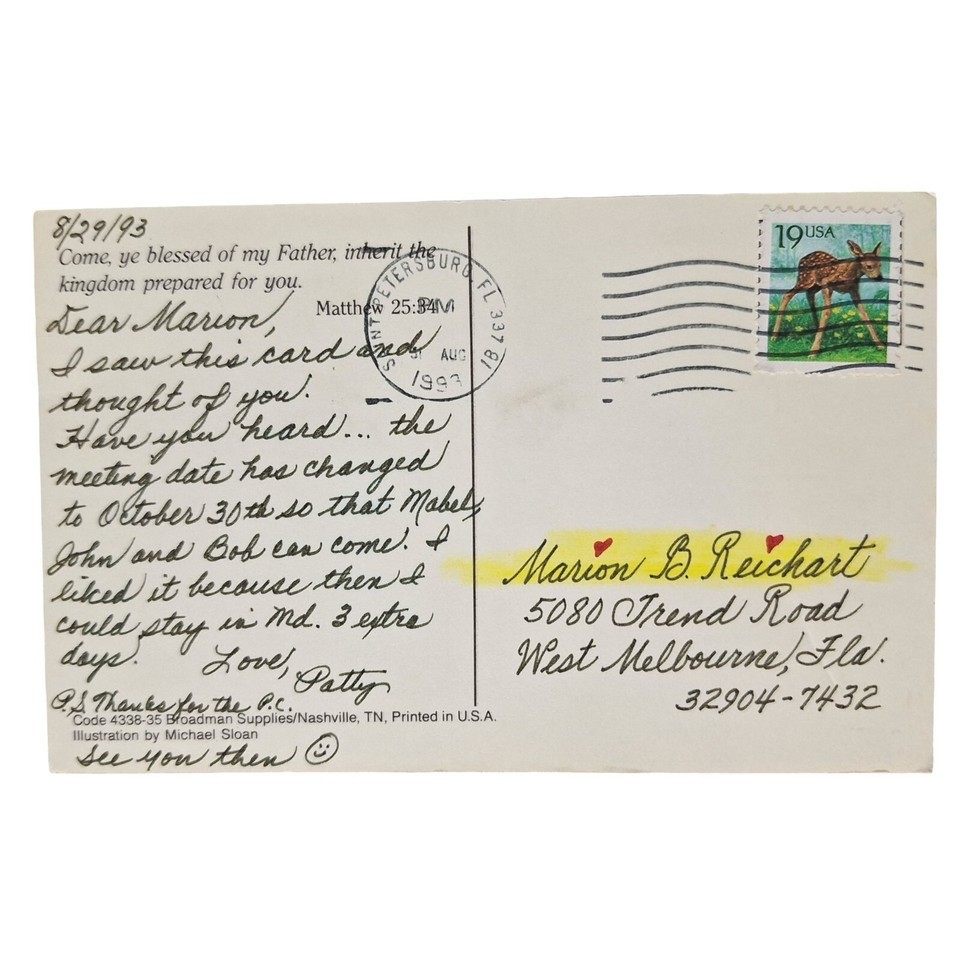 8/29/93
Come, ye blessed of my Father, inherit the
kingdom prepared for you.
Matthew 25:34
Dear Marion,
I saw this card and
thought of you.
Have you heard... the
meeting date has changed
to October 30th so that Mabel,
John and Bob can come. I
liked it because then I
could stay in Md. 3 extra
days. Love,
Patty
P.S Thanks for the P.C.
Code 4338-35 Broadman Supplies/Nashville, TN, Printed in U.S.A.
Illustration by Michael Sloan
See you then
SAINT PETERSBURG, FL 337 81
PM
31 AUG
1993
19 USA
Marion B. Reichart
5080 Trend Road
West Melbourne, Fla.
32904-7432